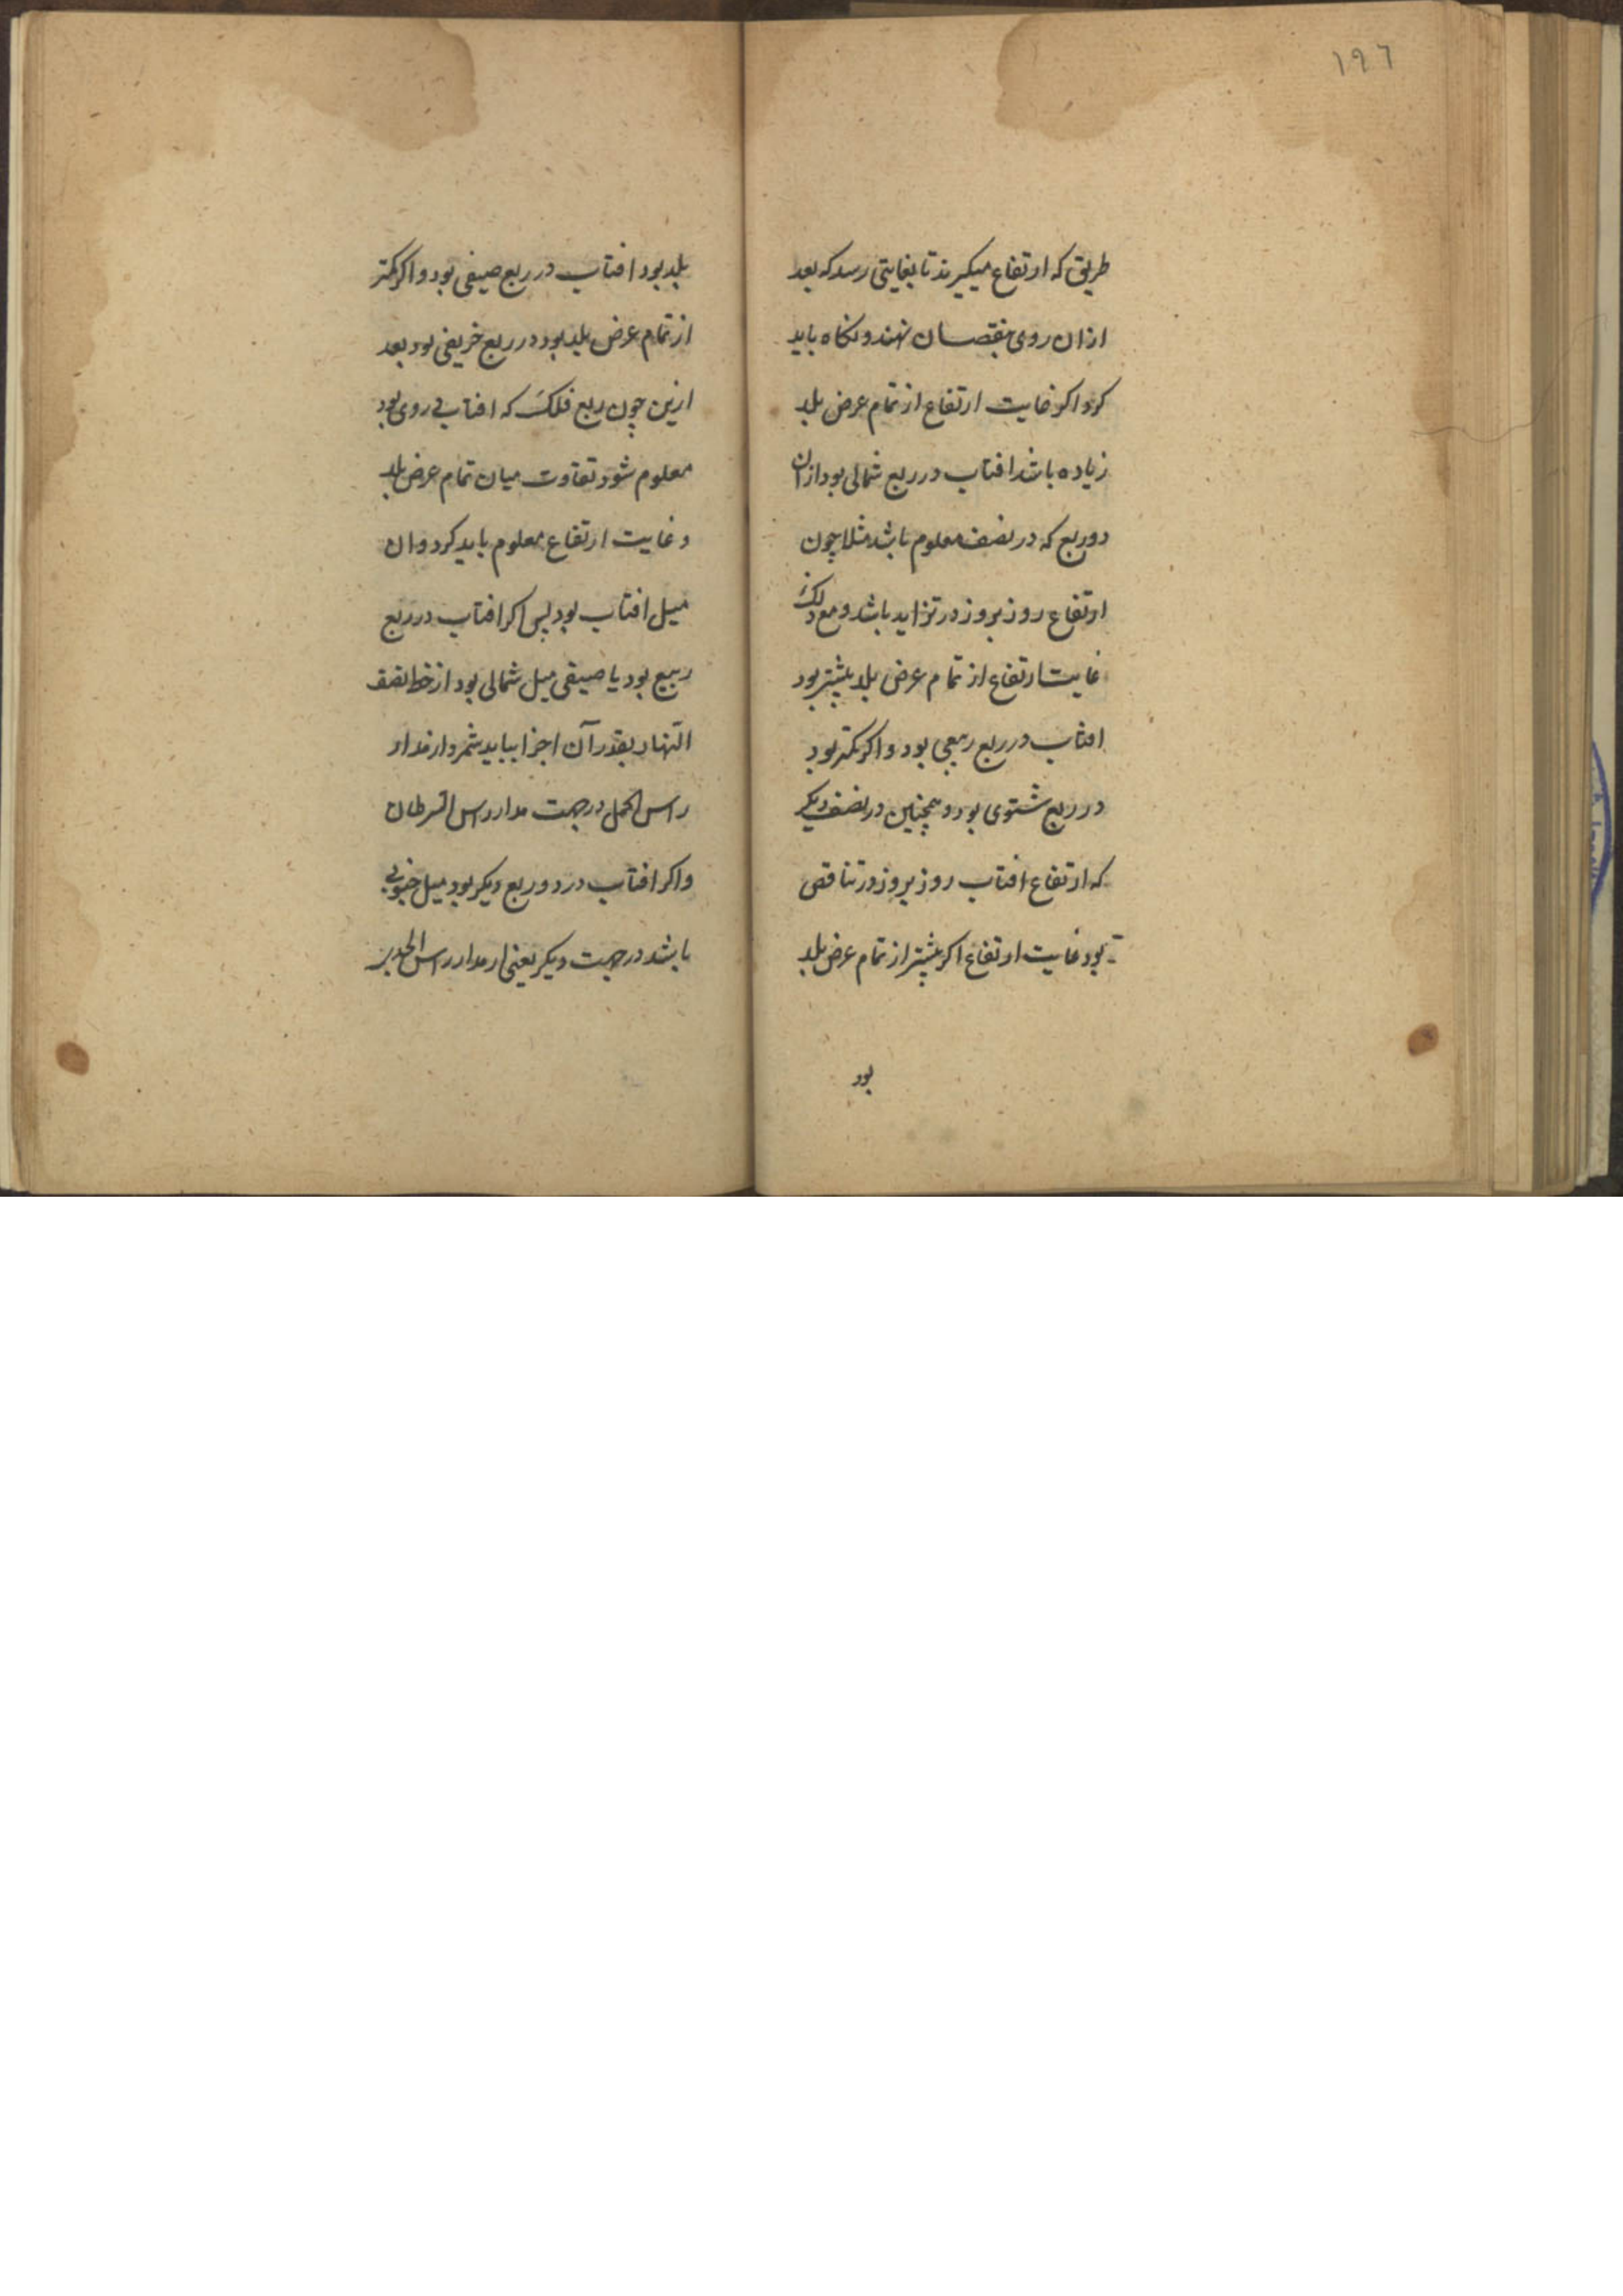 ١٩٦
طریق که ارتفاع میکیرند تا بغایتی رسد که بعد
ازان روی بنقصان نهند و نکاه باید
کرد اکر غایت ارتفاع از تمام عرض بلد
زیاده باشد افتاب در ربع شمالی بود ازان
دو ربع که در نصف معلوم باشد مثلا چون
ارتفاع روز بروز در تزاید باشد و مع ذلک
غایت ارتفاع از تمام عرض بلد بیشتر بود
افتاب در ربع ربیعی بود و اکر کمتر بود
در ربع شتوی بود و همچنین در نصف دیکر
که ارتفاع افتاب روز بروز در تناقص
بود غایت ارتفاع اکر بیشتر از تمام عرض بلد
بود
بلد بود افتاب در ربع صیفی بود و اکر کمتر
از تمام عرض بلد بود در ربع خریفی بود بعد
ازین چون ربع فلک که افتاب در وی بود
معلوم شود تفاوت میان تمام عرض بلد
و غایت ارتفاع معلوم باید کرد و ان
میل افتاب بود پس اکر افتاب در ربع
ربیع بود یا صیفی میل شمالی بود از خط نصف
النهار بقدر آن اجزا بباید شمرد از مدار
راس الحمل در جهت مدار راس السرطان
و اکر افتاب در دو ربع دیکر بود میل جنوبی
باشد در جهت دیکر یعنی از مدار راس الجدی